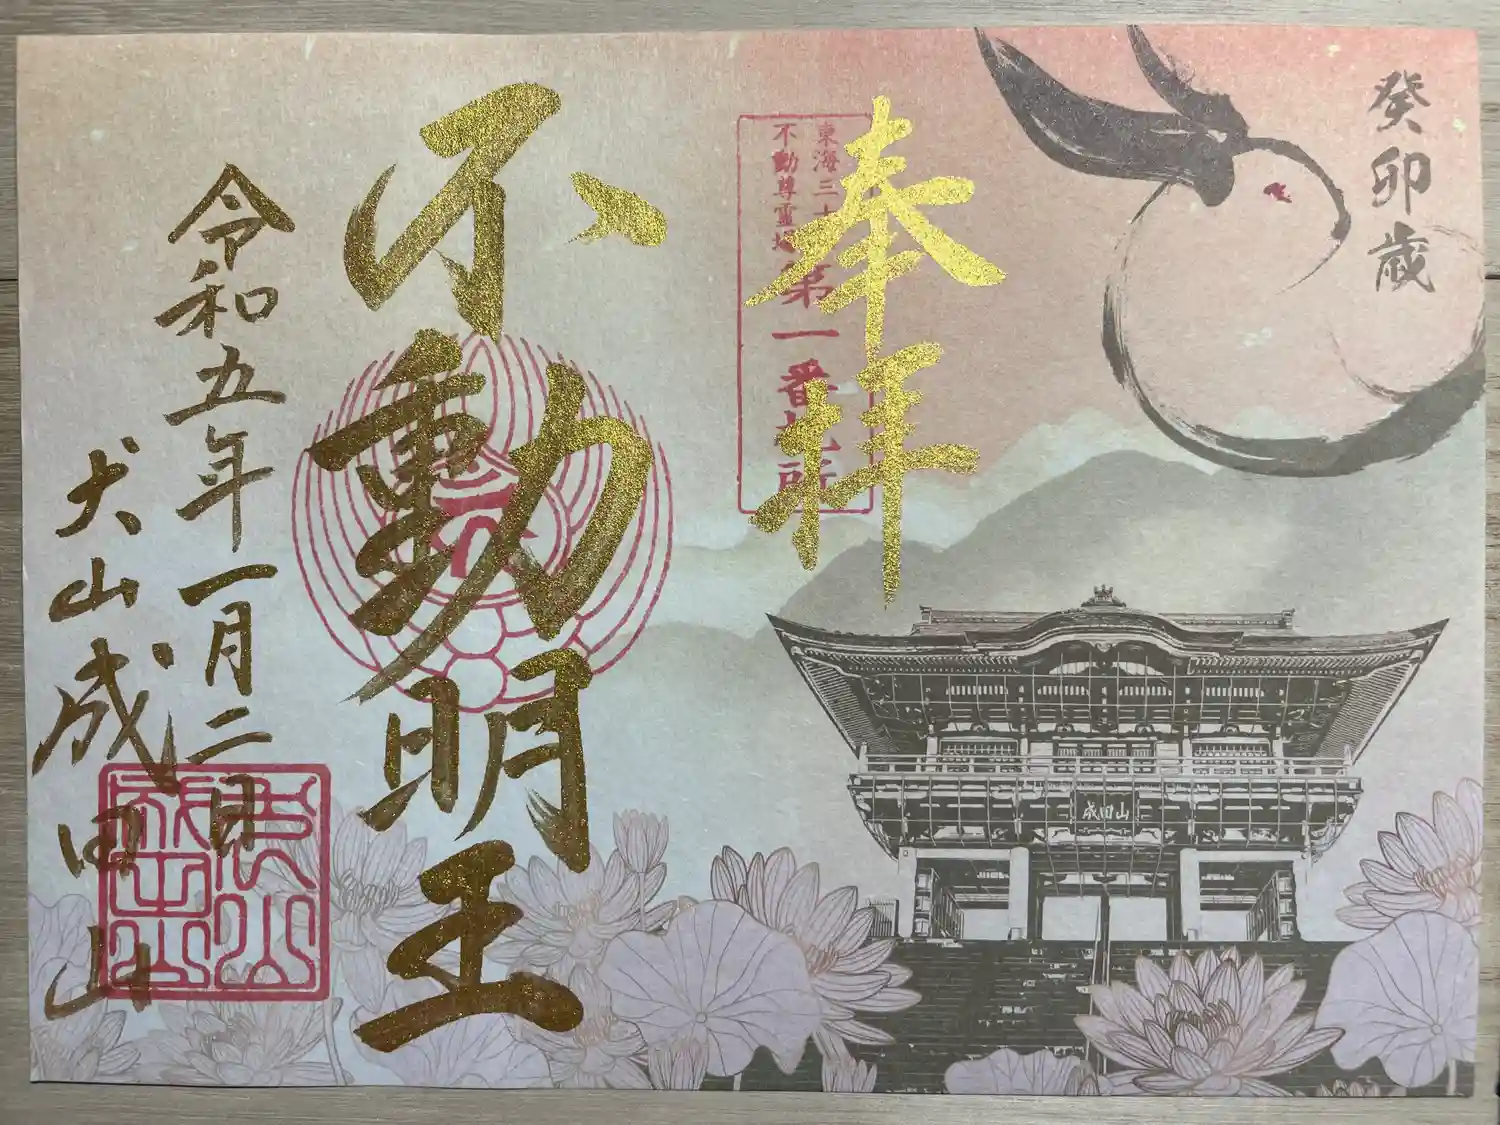 癸卯歳
奉拝
東海三十
不動尊霊場
第一番札所
不動明王
令和五年一月二日
犬山成田山
成田山
犬山成田山